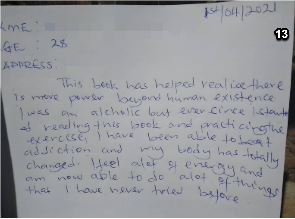 1st/04/2021
13
NAME :
AGE : 28
ADDRESS:
This book has helped realise there
is more power beyond human existence
I was an alcholic but ever since I started
reading this book and practicing the
exercise, I have been able to beat
addiction and my body has totally
changed. I feel alot of energy and
am now able to do alot of things
that I have never tried before